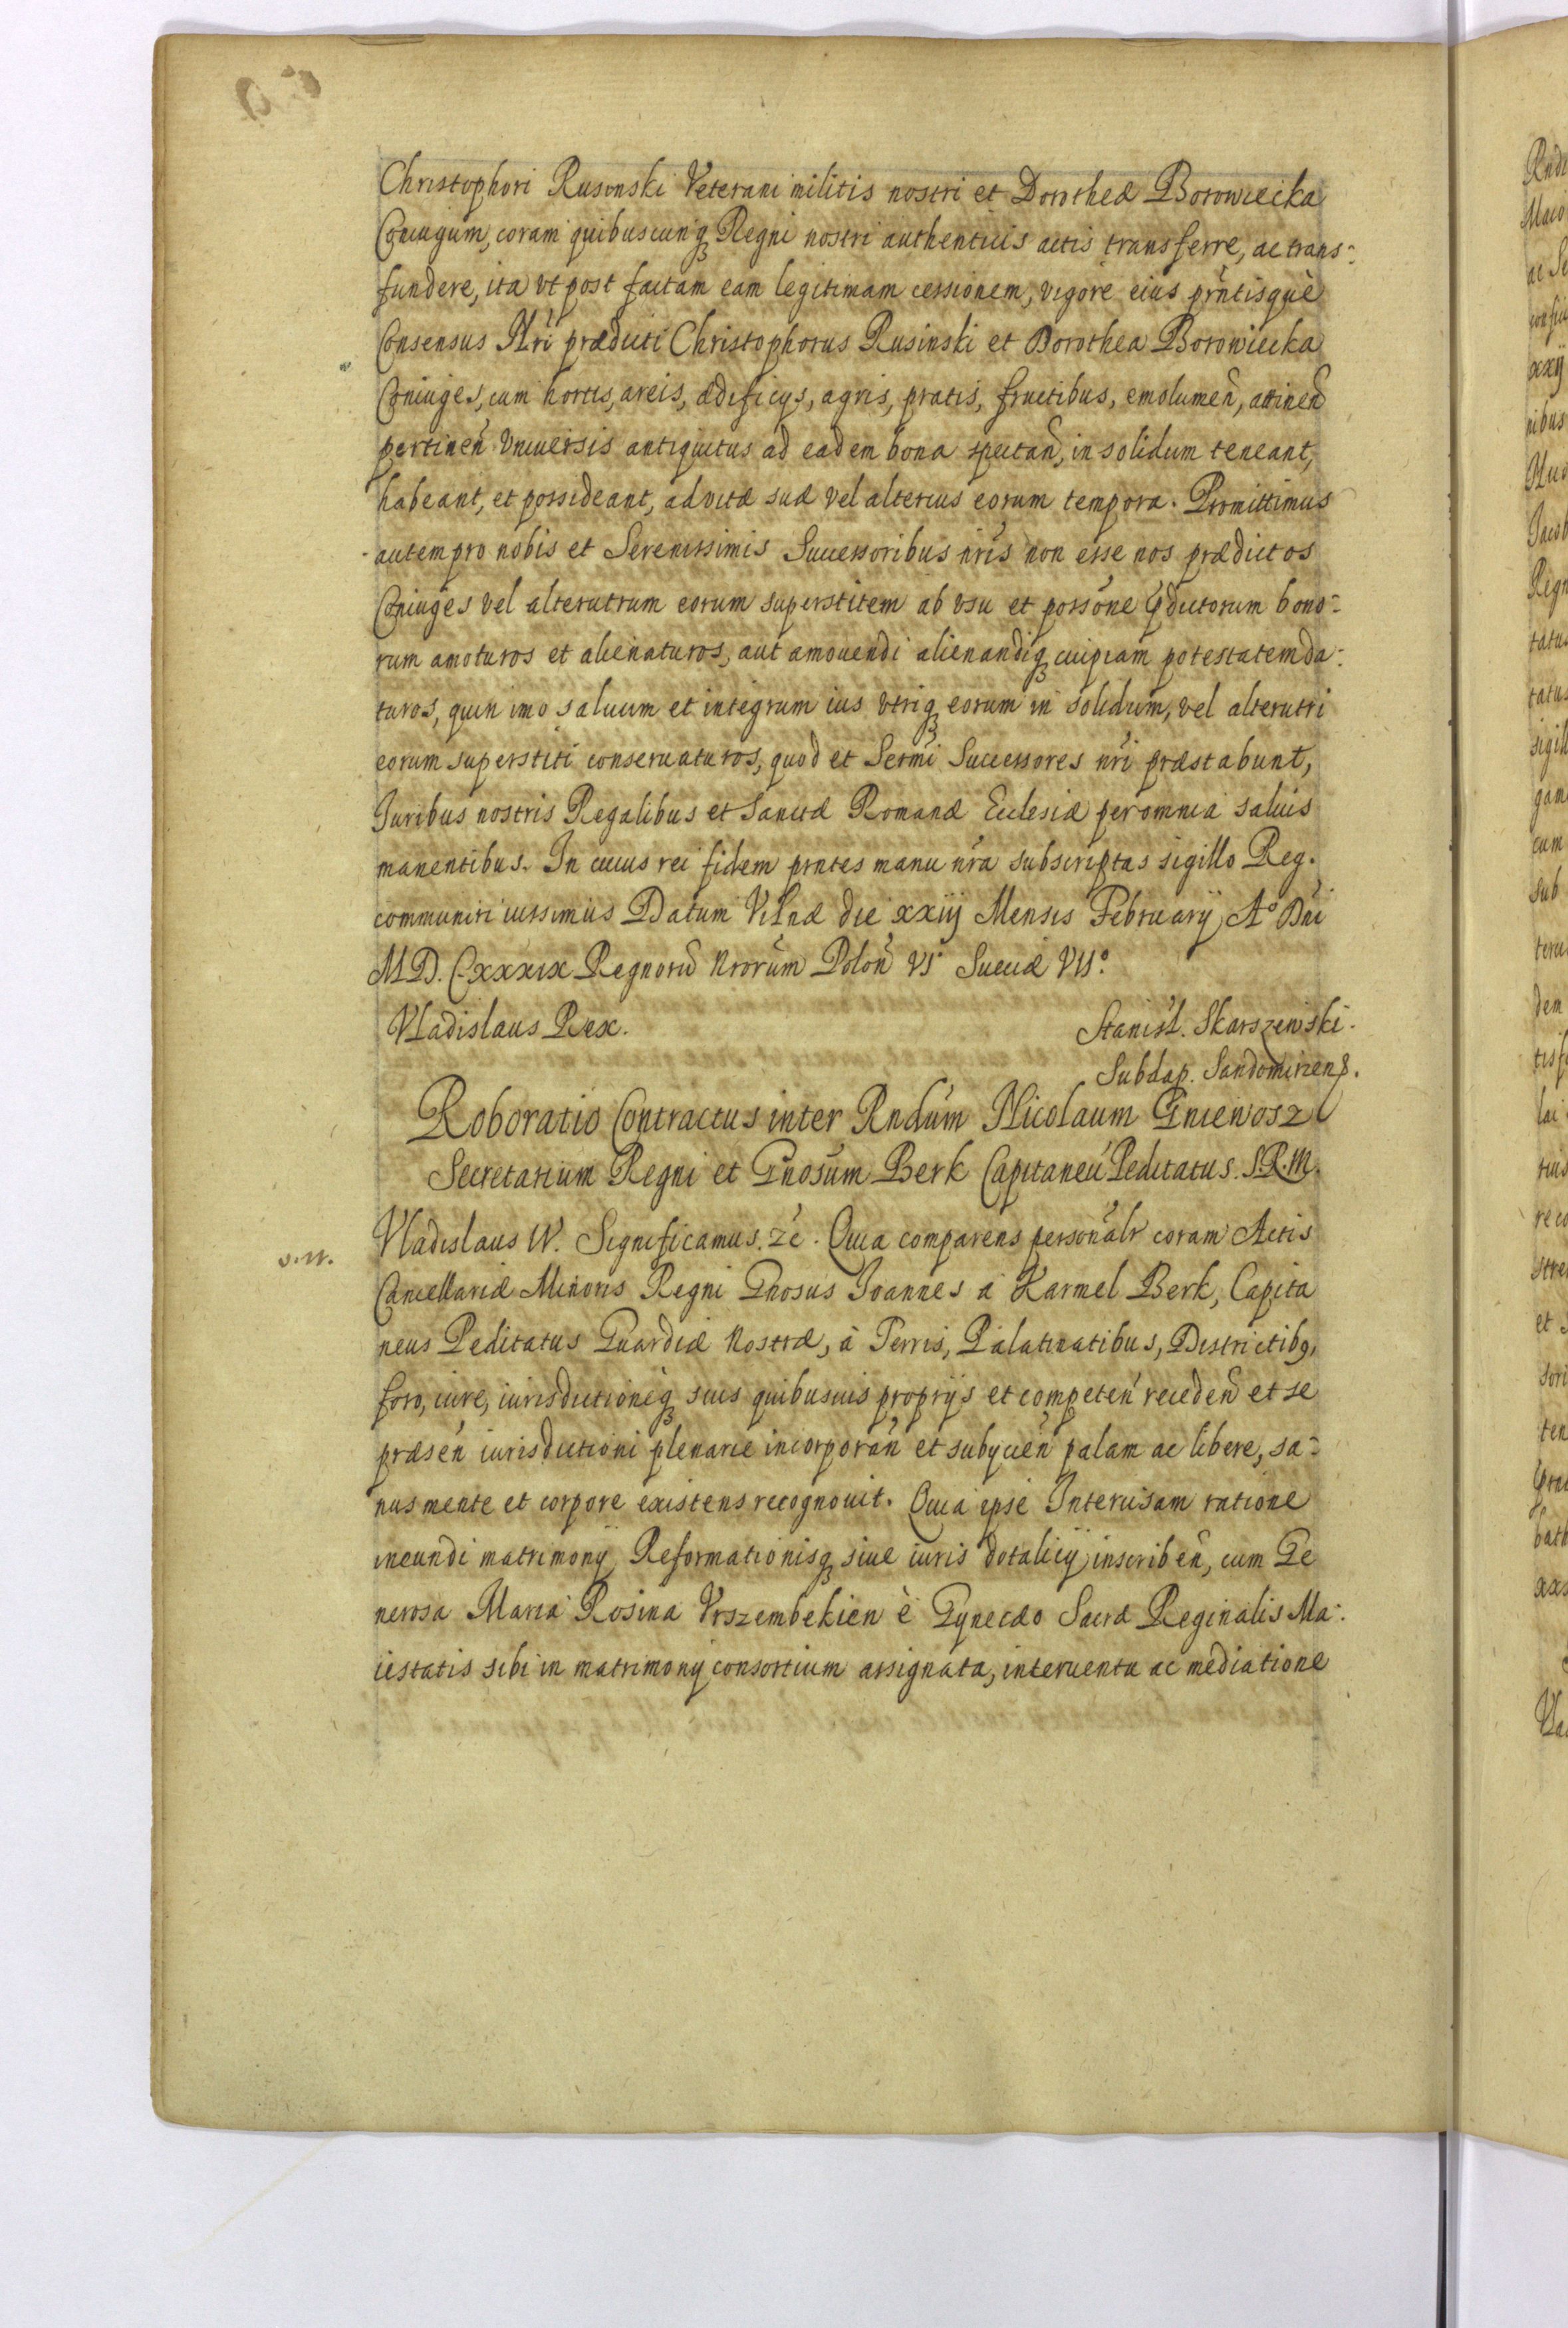 Christophori Rusinski Veterani militis nostri et Dorotheæ Borowiecka
Coniugum, coram quibuscunqꝫ Regni nostri authenticis actis transferre, ac trans=
fundere, ita vt post factam eam legitimam cessionem, vigore eius prntisquè
Consensus Nri prædicti Christophorus Rusinski et Dorothea Borowiecka
Coniuges, cum hortis, areis, ædificys, agris, pratis, fructibus, emolumen̄, attinen̄
pertinen̄ vniuersis antiquitus ad eadem bona spectan̄, in solidum teneant,
habeant, et possideant, ad vitæ suæ vel alterius eorum tempora. Promittimus
autem pro nobis et Serenissimis Successoribus nris non esse nos prædictos
Coniuges vel alterutrum eorum superstitem ab vsu et possone p̄dictorum bono=
rum amoturos et alienaturos, aut amouendi alienandiqꝫ cuipiam potestatem da=
turos, quin imo saluum et integrum ius vtriqꝫ eorum in solidum, vel alterutri
eorum superstiti conseruaturos, quod et Sermi Successores nri præstabunt,
Juribus nostris Regalibus et Sanctæ Romanæ Ecclesiæ per omnia saluis
manentibus. In cuius rei fidem prntes manu nra subscriptas sigillo Reg.
communiri iussimus Datum Vilnæ die xxiij Mensis February A° Dni
MD. CXXXIX Regnorū Nrorum Polon̄ VI° Sueciæ VII°.
Vladislaus Rex.
Stanisł. Skarszewski.
Subdap. Sandomiriens.
Roboratio Contractus inter Rndum Nicolaum Gniewosz
Secretarium Regni et Gnosum Berk Capitaneū Peditatus. S.R.M.
Vladislaus IV. Significamus. &c. Quia comparens personalr coram Actis
Cancellariæ Minoris Regni Gnosus Joannes a Karmel Berk, Capita
neus Peditatus Guardiæ Nostræ, à Terris, Palatinatibus, Districtibꝯ,
foro, iure, iurisdictioneqꝫ suis quibusuis proprijs et competen̄ receden̄ et se
præsen̄ iurisdictioni plenarie incorporan̄ et subycien̄ palam ac libere, sa=
nus mente et corpore existens recognouit. Quia ipse Intercisam ratione
ineundi matrimonÿ Reformationisqꝫ siue iuris dotalicÿ inscriben̄, cum Ge
nerosa Maria Rosina Vrszembekien è Gynecæo Sacræ Reginalis Ma=
iestatis sibi in matrimonÿ consortium assignata, interuentu ac mediatione